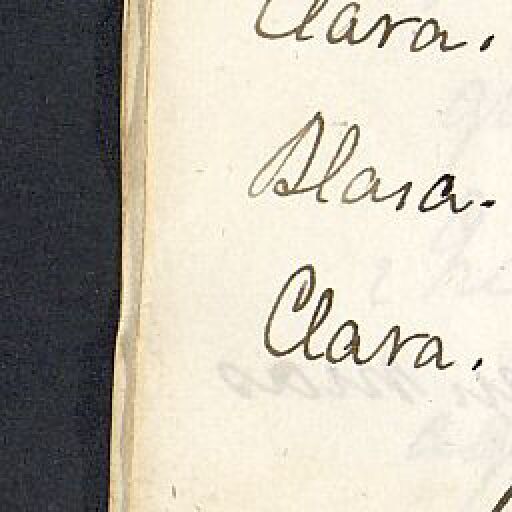 Clara.
Blasa.
Clara.